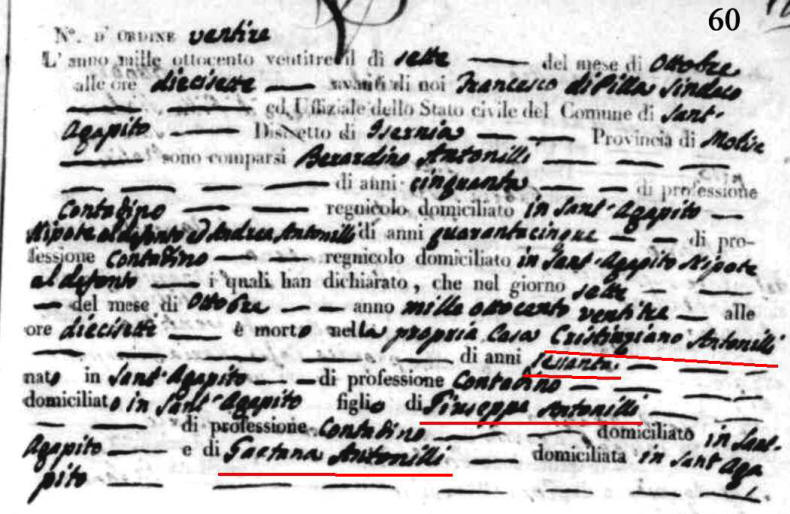 60
N°. D' ORDINE ventitre
L' anno mille ottocento ventitre il di sette del mese di Ottobre
alle ore diecisette avanti di noi Francesco di Pilla Sindaco
ed Uffiziale dello Stato civile del Comune di Sant'
Agapito Distretto di Isernia Provincia di Molise
sono comparsi Berardino Antonilli
di anni cinquanta di professione
Contadino regnicolo domiciliato in Sant'Agapito
Nipote al defonto ed Andrea Antonilli di anni quarantacinque di pro-
fessione Contadino regnicolo domiciliato in Sant'Agapito Nipote
al defonto i quali han dichiarato, che nel giorno sette
del mese di Ottobre anno mille ottocento ventitre alle
ore diecisette è morto nella propria Casa Cristinziano Antonilli
di anni sessanta
nato in Sant'Agapito di professione Contadino
domiciliato in Sant'Agapito figlio di Giuseppe Antonilli
di professione Contadino domiciliato in Sant'
Agapito e di Gaetana Antonilli domiciliata in Sant'Aga
pito